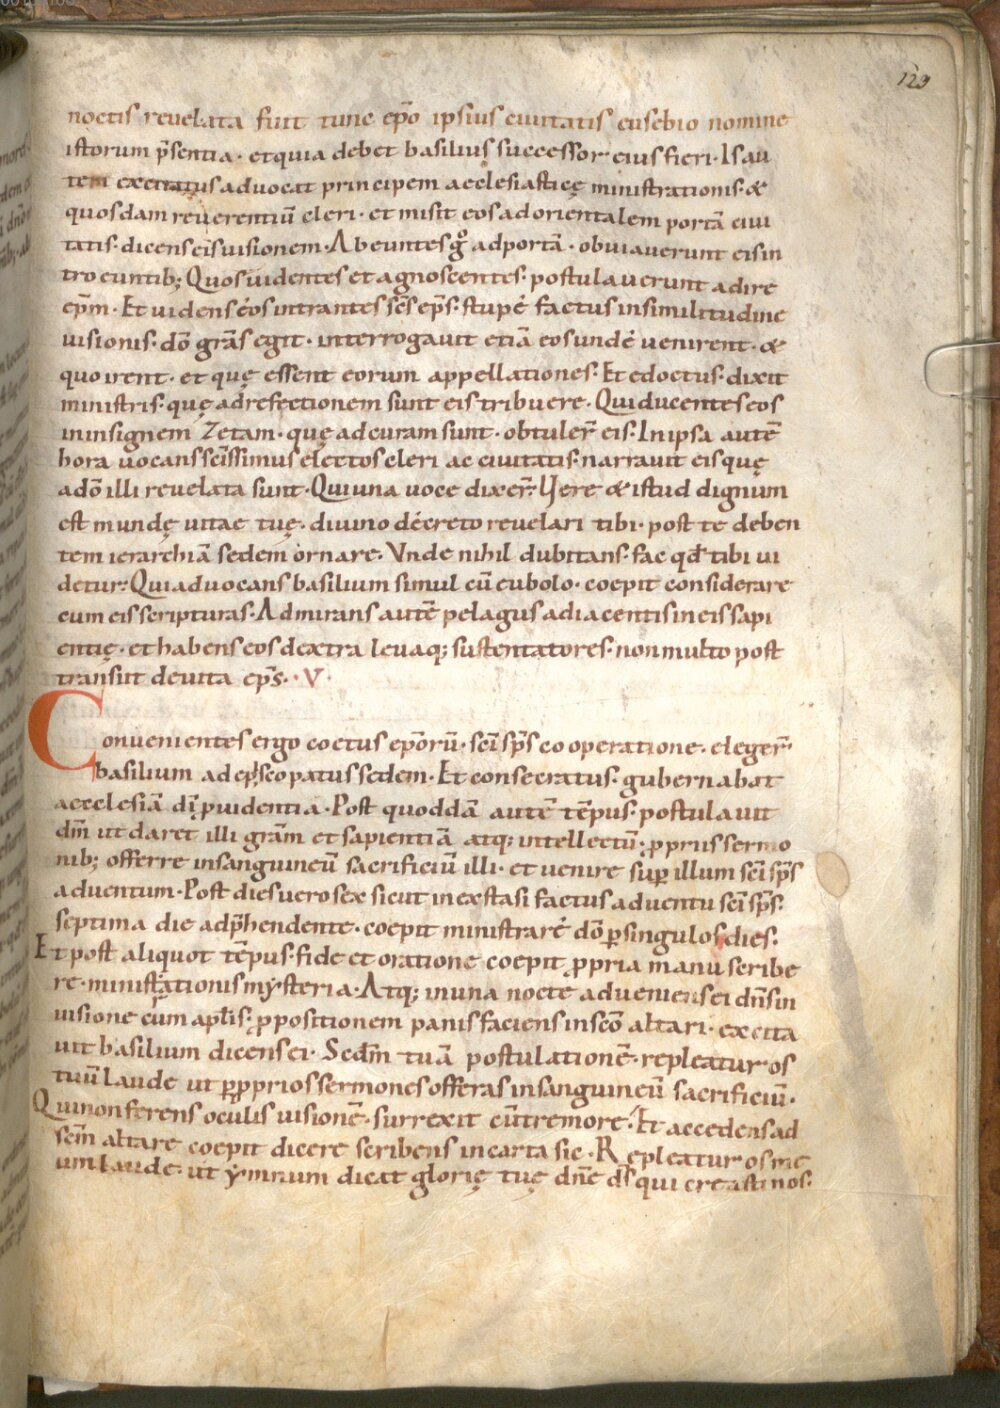 129
noctis revelata fuit tunc ep̄o ipsius civitatis eusebio nomine
istorum p̄sentia · et quia debet basilius successor eius fieri · Is au
tem excitatus advocat principem aecclesiasticę ministrationis · &
quosdam reverentiū cleri · et misit eos ad orientalem portā civi
tatis · dicens eis visionem · Abeuntes gͦ ad portā · obviaverunt eis in
troeuntib; Quos videntes et agnoscentes · postulaverunt adire
ep̄m · Et videns eos intrantes sc̄s ep̄s · stupe factus in similitudine
visionis · dō grās egit · interrogavit etiā eos unde venirent · &
quo irent · et quę essent eorum appellationes · Et edoctus · dixit
ministris · quę ad refectionem sunt eis tribuere · Qui ducentes eos
in insignem Zetam · quę ad curam sunt · obtuler̄ eis · In ipsa autē
hora vocans sc̄issimus electos cleri ac civitatis · narravit eis quę
a dō illi revelata sunt · Qui una voce dixer̄ · Vere & istud dignum
est mundę vitae tuę · divino decreto revelari tibi · post te deben
tem ierarchiā sedem ornare · Unde nihil dubitans · fac qd̄ tibi vi
detur · Qui advocans basilium simul cū eubolo · coepit considerare
cum eis scripturas · Admirans autē pelagus adiacentis in eis sapi
entię · et habens eos dextra levaq; sustentatores · non multo post
transiit de vita ep̄s · · V ·
Convenientes ergo coetus ep̄orū · sc̄i sp̄s cooperatione · eleger̄
basilium ad ep̄scopatus sedem · Et consecratus · gubernabat
aecclesiā dī p̱videntia · Post quoddā autē tēpus · postulavit
dm̄ ut daret illi grām et sapientiā atq; intellectū · p̱prus sermo
nib; offerre insanguineū sacrificiū illi · et venire sup̱ illum sc̄i sp̄s
adventum · Post dies vero sex sicut in exstasi factus adventu sc̄i sp̄s ·
septima die adp̄hendente · coepit ministrare dō p̱ singulos dies ·
Et post aliquot tēpus · fide et oratione coepit p̱pria manu scribe
re · ministrationis mẏsteria · Atq; in una nocte adveniens ei dn̄s in
visione cum apl̄is · p̱positionem panis faciens in sc̄o altari · excita
vit basilium dicens ei · Sedm̄ tuā postulationē · repleatur os
tuū laude ut p̱ p̱prios sermones offeras insanguineū sacrificiū ·
Qui non ferens oculis visionē · surrexit cū tremore · Et accedens ad
sc̄m altare coepit dicere scribens in carta sic · Repleatur os me
um laude · ut ẏmnum dicat glorię tuę dn̄e ds̄ qui creasti nos ·